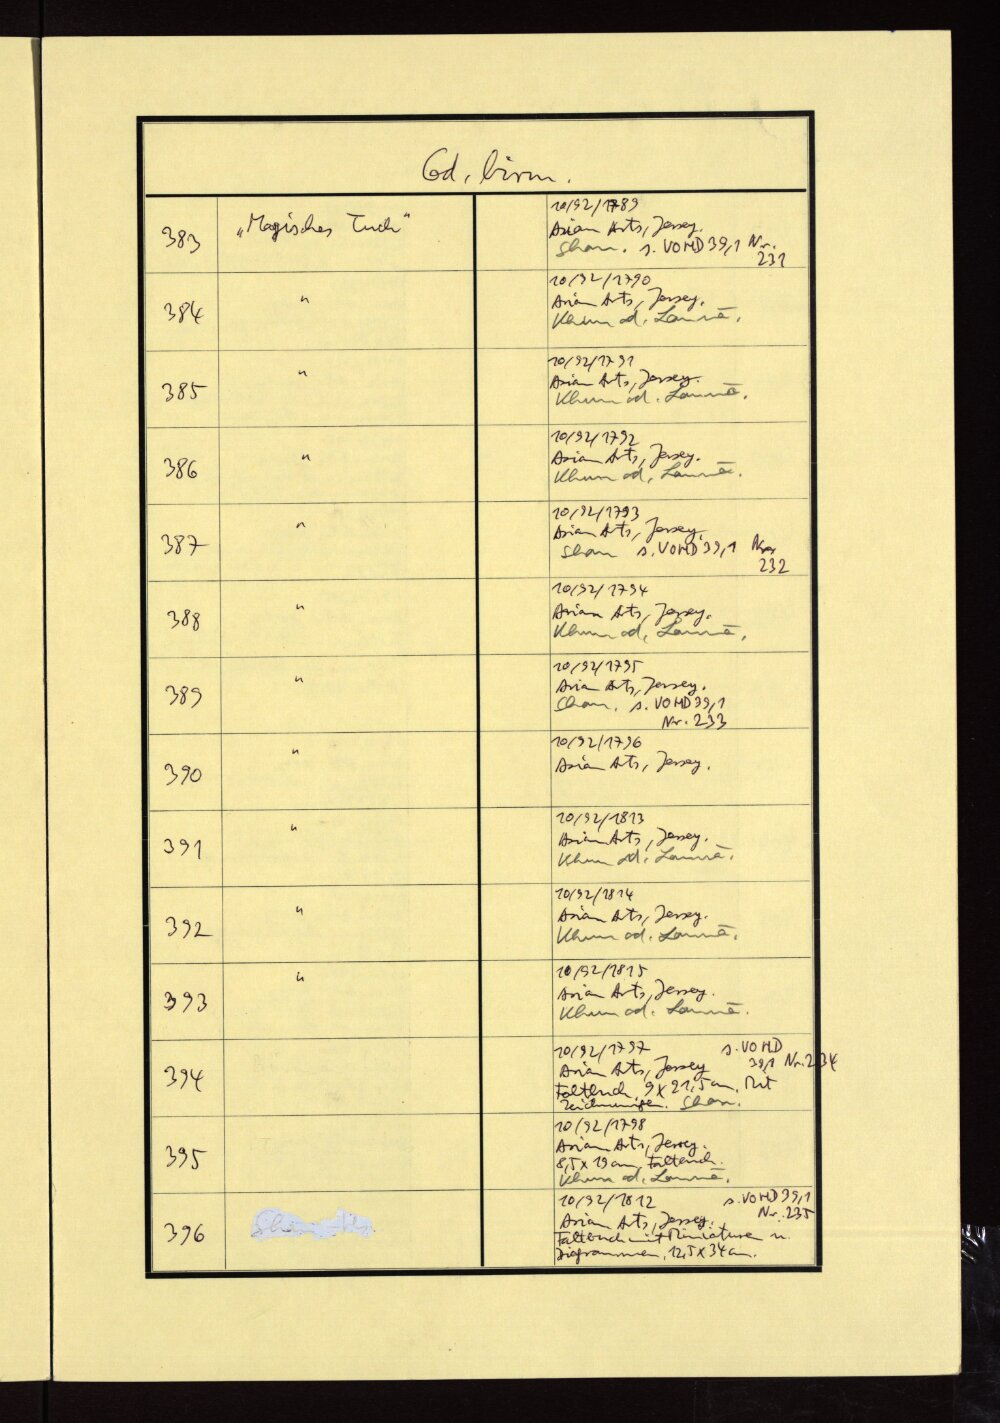 Cod. birm.
383 „Magisches Tuch“ 10/92/1789
Asian Arts, Jersey.
Shan. s. VOHD 39,1 Nr.
231
384 " 10/92/1790
Asian Arts, Jersey.
Khun od. Lanna.
385 " 10/92/1791
Asian Arts, Jersey.
Khun od. Lannā.
386 " 10/92/1792
Asian Arts, Jersey.
Khun od. Lannā.
387 " 10/92/1793
Asian Arts, Jersey.
Shan s. VOHD 39,1 Nr.
232
388 " 10/92/1794
Asian Arts, Jersey.
Khun od. Lannā.
389 " 10/92/1795
Asian Arts, Jersey.
Shan. s. VOHD 39,1
Nr. 233
390 " 10/92/1796
Asian Arts, Jersey.
391 " 10/92/1813
Asian Arts, Jersey.
Khun od. Lannā.
392 " 10/92/1814
Asian Arts, Jersey.
Khun od. Lannā.
393 " 10/92/1815
Asian Arts, Jersey.
Khun od. Lannā.
394 10/92/1797 s. VOHD
Asian Arts, Jersey 39,1 Nr. 234
Faltbuch, 9 x 21,5 cm. Mit
Zeichnungen. Shan.
395 10/92/1798
Asian Arts, Jersey.
8,5 x 19 cm, Faltbuch.
Khun od. Lannā.
396 10/92/1812 s. VOHD 39,1
Asian Arts, Jersey. Nr. 235
Faltbuch mit Miniaturen u.
Diagrammen, 12,5 x 34 cm.